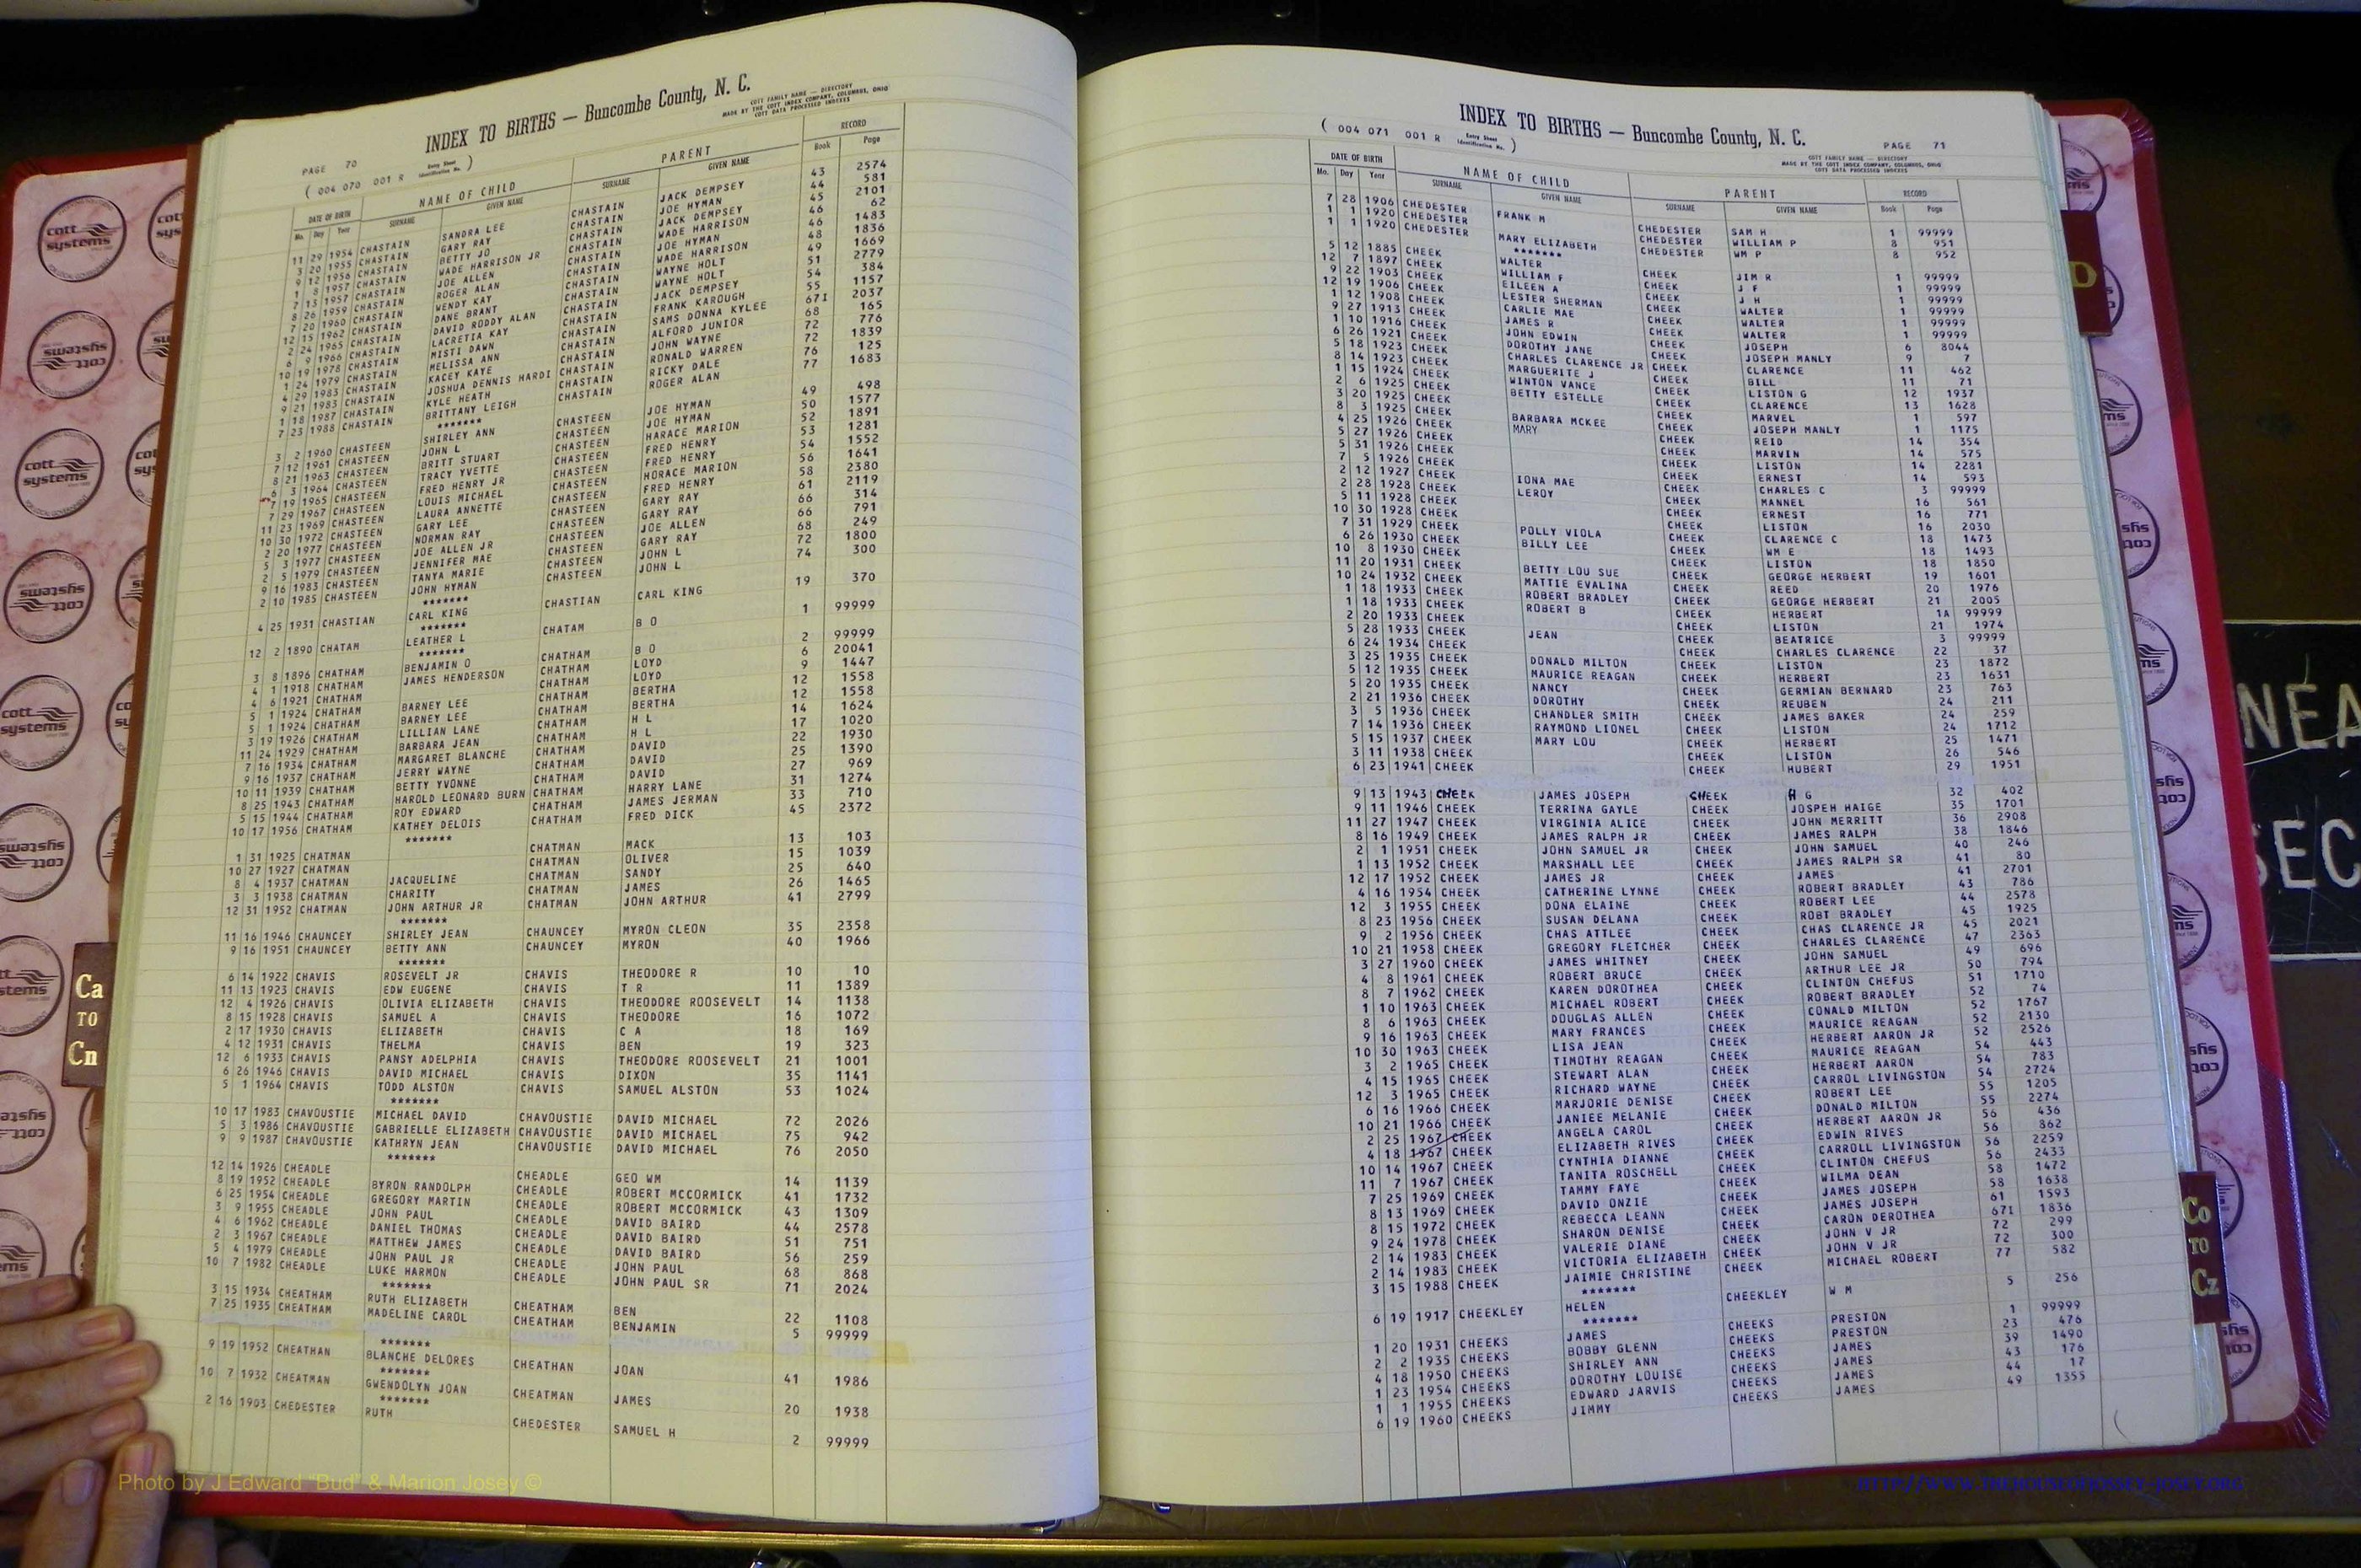 INDEX TO BIRTHS — Buncombe County, N. C.
COTT FAMILY NAME — DIRECTORY
MADE BY THE COTT INDEX COMPANY, COLUMBUS, OHIO
COTT DATA PROCESSED INDEXES
PAGE 70
( 004 070 001 R Entry Sheet Identification No. )
DATE OF BIRTH NAME OF CHILD PARENT RECORD
Mo. Day Year SURNAME GIVEN NAME SURNAME GIVEN NAME Book Page
11 29 1954 CHASTAIN SANDRA LEE CHASTAIN JACK DEMPSEY 43 2574
3 20 1955 CHASTAIN GARY RAY CHASTAIN JOE HYMAN 44 581
9 12 1956 CHASTAIN BETTY JO CHASTAIN JACK DEMPSEY 45 2101
1 8 1957 CHASTAIN WADE HARRISON JR CHASTAIN WADE HARRISON 46 62
7 13 1957 CHASTAIN JOE ALLEN CHASTAIN JOE HYMAN 46 1483
8 26 1959 CHASTAIN ROGER ALAN CHASTAIN WADE HARRISON 48 1836
7 20 1960 CHASTAIN WENDY KAY CHASTAIN WAYNE HOLT 49 1669
12 15 1962 CHASTAIN DANE BRANT CHASTAIN WAYNE HOLT 51 2779
2 24 1965 CHASTAIN DAVID RODDY ALAN CHASTAIN JACK DEMPSEY 54 384
6 9 1966 CHASTAIN LACRETIA KAY CHASTAIN FRANK KAROUGH 55 1157
10 19 1978 CHASTAIN MISTI DAWN CHASTAIN SAMS DONNA KYLEE 671 2037
1 24 1979 CHASTAIN MELISSA ANN CHASTAIN ALFORD JUNIOR 68 165
4 29 1983 CHASTAIN KACEY KAYE CHASTAIN JOHN WAYNE 72 776
9 21 1983 CHASTAIN JOSHUA DENNIS HARDI CHASTAIN RONALD WARREN 72 1839
1 18 1987 CHASTAIN KYLE HEATH CHASTAIN RICKY DALE 76 125
7 23 1988 CHASTAIN BRITTANY LEIGH CHASTAIN ROGER ALAN 77 1683
*******
3 2 1960 CHASTEEN SHIRLEY ANN CHASTEEN JOE HYMAN 49 498
7 12 1961 CHASTEEN JOHN L CHASTEEN JOE HYMAN 50 1577
8 21 1963 CHASTEEN BRITT STUART CHASTEEN HARACE MARION 52 1891
6 3 1964 CHASTEEN TRACY YVETTE CHASTEEN FRED HENRY 53 1281
7 19 1965 CHASTEEN FRED HENRY JR CHASTEEN FRED HENRY 54 1552
7 29 1967 CHASTEEN LOUIS MICHAEL CHASTEEN HORACE MARION 56 1641
11 23 1969 CHASTEEN LAURA ANNETTE CHASTEEN FRED HENRY 58 2380
10 30 1972 CHASTEEN GARY LEE CHASTEEN GARY RAY 61 2119
2 20 1977 CHASTEEN NORMAN RAY CHASTEEN GARY RAY 66 314
5 3 1977 CHASTEEN JOE ALLEN JR CHASTEEN JOE ALLEN 66 791
2 5 1979 CHASTEEN JENNIFER MAE CHASTEEN GARY RAY 68 249
9 16 1983 CHASTEEN TANYA MARIE CHASTEEN JOHN L 72 1800
2 10 1985 CHASTEEN JOHN HYMAN CHASTEEN JOHN L 74 300
*******
4 25 1931 CHASTIAN CARL KING CHASTIAN CARL KING 19 370
*******
12 2 1890 CHATAM LEATHER L CHATAM B O 1 99999
*******
3 8 1896 CHATHAM BENJAMIN O CHATHAM B O 2 99999
4 1 1918 CHATHAM JAMES HENDERSON CHATHAM LOYD 6 20041
4 6 1921 CHATHAM CHATHAM LOYD 9 1447
5 1 1924 CHATHAM BARNEY LEE CHATHAM BERTHA 12 1558
5 1 1924 CHATHAM BARNEY LEE CHATHAM BERTHA 12 1558
3 19 1926 CHATHAM LILLIAN LANE CHATHAM H L 14 1624
11 24 1929 CHATHAM BARBARA JEAN CHATHAM H L 17 1020
7 16 1934 CHATHAM MARGARET BLANCHE CHATHAM DAVID 22 1930
9 16 1937 CHATHAM JERRY WAYNE CHATHAM DAVID 25 1390
10 11 1939 CHATHAM BETTY YVONNE CHATHAM DAVID 27 969
8 25 1943 CHATHAM HAROLD LEONARD BURN CHATHAM HARRY LANE 31 1274
5 15 1944 CHATHAM ROY EDWARD CHATHAM JAMES JERMAN 33 710
10 17 1956 CHATHAM KATHEY DELOIS CHATHAM FRED DICK 45 2372
*******
1 31 1925 CHATMAN CHATMAN MACK 13 103
10 27 1927 CHATMAN CHATMAN OLIVER 15 1039
8 4 1937 CHATMAN JACQUELINE CHATMAN SANDY 25 640
3 3 1938 CHATMAN CHARITY CHATMAN JAMES 26 1465
12 31 1952 CHATMAN JOHN ARTHUR JR CHATMAN JOHN ARTHUR 41 2799
*******
11 16 1946 CHAUNCEY SHIRLEY JEAN CHAUNCEY MYRON CLEON 35 2358
9 16 1951 CHAUNCEY BETTY ANN CHAUNCEY MYRON 40 1966
*******
6 14 1922 CHAVIS ROSEVELT JR CHAVIS THEODORE R 10 10
11 13 1923 CHAVIS EDW EUGENE CHAVIS T R 11 1389
12 4 1926 CHAVIS OLIVIA ELIZABETH CHAVIS THEODORE ROOSEVELT 14 1138
8 15 1928 CHAVIS SAMUEL A CHAVIS THEODORE 16 1072
2 17 1930 CHAVIS ELIZABETH CHAVIS C A 18 169
4 12 1931 CHAVIS THELMA CHAVIS BEN 19 323
12 6 1933 CHAVIS PANSY ADELPHIA CHAVIS THEODORE ROOSEVELT 21 1001
6 26 1946 CHAVIS DAVID MICHAEL CHAVIS DIXON 35 1141
5 1 1964 CHAVIS TODD ALSTON CHAVIS SAMUEL ALSTON 53 1024
*******
10 17 1983 CHAVOUSTIE MICHAEL DAVID CHAVOUSTIE DAVID MICHAEL 72 2026
5 3 1986 CHAVOUSTIE GABRIELLE ELIZABETH CHAVOUSTIE DAVID MICHAEL 75 942
9 9 1987 CHAVOUSTIE KATHRYN JEAN CHAVOUSTIE DAVID MICHAEL 76 2050
*******
12 14 1926 CHEADLE CHEADLE GEO WM 14 1139
8 19 1952 CHEADLE BYRON RANDOLPH CHEADLE ROBERT MCCORMICK 41 1732
6 25 1954 CHEADLE GREGORY MARTIN CHEADLE ROBERT MCCORMICK 43 1309
3 9 1955 CHEADLE JOHN PAUL CHEADLE DAVID BAIRD 44 2578
4 6 1962 CHEADLE DANIEL THOMAS CHEADLE DAVID BAIRD 51 751
2 3 1967 CHEADLE MATTHEW JAMES CHEADLE DAVID BAIRD 56 259
5 4 1979 CHEADLE JOHN PAUL JR CHEADLE JOHN PAUL 68 868
10 7 1982 CHEADLE LUKE HARMON CHEADLE JOHN PAUL SR 71 2024
*******
3 15 1934 CHEATHAM RUTH ELIZABETH CHEATHAM BEN 22 1108
7 25 1935 CHEATHAM MADELINE CAROL CHEATHAM BENJAMIN 5 99999
*******
9 19 1952 CHEATHAN BLANCHE DELORES CHEATHAN JOAN 41 1986
*******
10 7 1932 CHEATMAN GWENDOLYN JOAN CHEATMAN JAMES 20 1938
*******
2 16 1903 CHEDESTER RUTH CHEDESTER SAMUEL H 2 99999
INDEX TO BIRTHS — Buncombe County, N. C.
( 004 071 001 R Entry Sheet Identification No. )
PAGE 71
COTT FAMILY NAME — DIRECTORY
MADE BY THE COTT INDEX COMPANY, COLUMBUS, OHIO
COTT DATA PROCESSED INDEXES
DATE OF BIRTH NAME OF CHILD PARENT RECORD
Mo. Day Year SURNAME GIVEN NAME SURNAME GIVEN NAME Book Page
7 28 1906 CHEDESTER FRANK M CHEDESTER SAM H 1 99999
1 1 1920 CHEDESTER CHEDESTER WILLIAM P 8 951
1 1 1920 CHEDESTER MARY ELIZABETH CHEDESTER WM P 8 952
*******
5 12 1885 CHEEK WALTER CHEEK JIM R 1 99999
12 7 1897 CHEEK WILLIAM F CHEEK J F 1 99999
9 22 1903 CHEEK EILEEN A CHEEK J H 1 99999
12 19 1906 CHEEK LESTER SHERMAN CHEEK WALTER 1 99999
1 12 1908 CHEEK CARLIE MAE CHEEK WALTER 1 99999
9 27 1913 CHEEK JAMES R CHEEK WALTER 1 99999
1 10 1916 CHEEK JOHN EDWIN CHEEK JOSEPH 6 8044
6 26 1921 CHEEK DOROTHY JANE CHEEK JOSEPH MANLY 9 7
5 18 1923 CHEEK CHARLES CLARENCE JR CHEEK CLARENCE 11 462
8 14 1923 CHEEK MARGUERITE J CHEEK BILL 11 71
1 15 1924 CHEEK WINTON VANCE CHEEK LISTON G 12 1937
2 6 1925 CHEEK BETTY ESTELLE CHEEK CLARENCE 13 1628
3 20 1925 CHEEK CHEEK MARVEL 1 597
8 3 1925 CHEEK BARBARA MCKEE CHEEK JOSEPH MANLY 1 1175
4 25 1926 CHEEK MARY CHEEK REID 14 354
5 27 1926 CHEEK CHEEK MARVIN 14 575
5 31 1926 CHEEK CHEEK LISTON 14 2281
7 5 1926 CHEEK CHEEK ERNEST 14 593
2 12 1927 CHEEK IONA MAE CHEEK CHARLES C 3 99999
2 28 1928 CHEEK LEROY CHEEK MANNEL 16 561
5 11 1928 CHEEK CHEEK ERNEST 16 771
10 30 1928 CHEEK CHEEK LISTON 16 2030
7 31 1929 CHEEK POLLY VIOLA CHEEK CLARENCE C 18 1473
6 26 1930 CHEEK BILLY LEE CHEEK WM E 18 1493
10 8 1930 CHEEK CHEEK LISTON 18 1850
11 20 1931 CHEEK BETTY LOU SUE CHEEK GEORGE HERBERT 19 1601
10 24 1932 CHEEK MATTIE EVALINA CHEEK REED 20 1976
1 18 1933 CHEEK ROBERT BRADLEY CHEEK GEORGE HERBERT 21 2005
1 18 1933 CHEEK ROBERT B CHEEK HERBERT 1A 99999
2 20 1933 CHEEK CHEEK LISTON 21 1974
5 28 1933 CHEEK JEAN CHEEK BEATRICE 3 99999
6 24 1934 CHEEK CHEEK CHARLES CLARENCE 22 37
3 25 1935 CHEEK DONALD MILTON CHEEK LISTON 23 1872
5 12 1935 CHEEK MAURICE REAGAN CHEEK HERBERT 23 1631
5 20 1935 CHEEK NANCY CHEEK GERMIAN BERNARD 23 763
2 21 1936 CHEEK DOROTHY CHEEK REUBEN 24 211
3 5 1936 CHEEK CHANDLER SMITH CHEEK JAMES BAKER 24 259
7 14 1936 CHEEK RAYMOND LIONEL CHEEK LISTON 24 1712
5 15 1937 CHEEK MARY LOU CHEEK HERBERT 25 1471
3 11 1938 CHEEK CHEEK LISTON 26 546
6 23 1941 CHEEK CHEEK HUBERT 29 1951
9 13 1943 CHEEK JAMES JOSEPH CHEEK H G 32 402
9 11 1946 CHEEK TERRINA GAYLE CHEEK JOSPEH HAIGE 35 1701
11 27 1947 CHEEK VIRGINIA ALICE CHEEK JOHN MERRITT 36 2908
8 16 1949 CHEEK JAMES RALPH JR CHEEK JAMES RALPH 38 1846
2 1 1951 CHEEK JOHN SAMUEL JR CHEEK JOHN SAMUEL 40 246
1 13 1952 CHEEK MARSHALL LEE CHEEK JAMES RALPH SR 41 80
12 17 1952 CHEEK JAMES JR CHEEK JAMES 41 2701
4 16 1954 CHEEK CATHERINE LYNNE CHEEK ROBERT BRADLEY 43 786
12 3 1955 CHEEK DONA ELAINE CHEEK ROBERT LEE 44 2578
8 23 1956 CHEEK SUSAN DELANA CHEEK ROBT BRADLEY 45 1925
9 2 1956 CHEEK CHAS ATTLEE CHEEK CHAS CLARENCE JR 45 2021
10 21 1958 CHEEK GREGORY FLETCHER CHEEK CHARLES CLARENCE 47 2363
3 27 1960 CHEEK JAMES WHITNEY CHEEK JOHN SAMUEL 49 696
4 8 1961 CHEEK ROBERT BRUCE CHEEK ARTHUR LEE JR 50 794
8 7 1962 CHEEK KAREN DOROTHEA CHEEK CLINTON CHEFUS 51 1710
1 10 1963 CHEEK MICHAEL ROBERT CHEEK ROBERT BRADLEY 52 74
8 6 1963 CHEEK DOUGLAS ALLEN CHEEK CONALD MILTON 52 1767
9 16 1963 CHEEK MARY FRANCES CHEEK MAURICE REAGAN 52 2130
10 30 1963 CHEEK LISA JEAN CHEEK HERBERT AARON JR 52 2526
3 2 1965 CHEEK TIMOTHY REAGAN CHEEK MAURICE REAGAN 54 443
4 15 1965 CHEEK STEWART ALAN CHEEK HERBERT AARON 54 783
12 3 1965 CHEEK RICHARD WAYNE CHEEK CARROL LIVINGSTON 54 2724
6 16 1966 CHEEK MARJORIE DENISE CHEEK ROBERT LEE 55 1205
10 21 1966 CHEEK JANIEE MELANIE CHEEK DONALD MILTON 55 2274
2 25 1967 CHEEK ANGELA CAROL CHEEK HERBERT AARON JR 56 436
4 18 1967 CHEEK ELIZABETH RIVES CHEEK EDWIN RIVES 56 862
10 14 1967 CHEEK CYNTHIA DIANNE CHEEK CARROLL LIVINGSTON 56 2259
11 7 1967 CHEEK TANITA ROSCHELL CHEEK CLINTON CHEFUS 56 2433
7 25 1969 CHEEK TAMMY FAYE CHEEK WILMA DEAN 58 1472
8 13 1969 CHEEK DAVID ONZIE CHEEK JAMES JOSEPH 58 1638
8 15 1972 CHEEK REBECCA LEANN CHEEK JAMES JOSEPH 61 1593
9 24 1978 CHEEK SHARON DENISE CHEEK CARON DEROTHEA 671 1836
2 14 1983 CHEEK VALERIE DIANE CHEEK JOHN V JR 72 299
2 14 1983 CHEEK VICTORIA ELIZABETH CHEEK JOHN V JR 72 300
3 15 1988 CHEEK JAIMIE CHRISTINE CHEEK MICHAEL ROBERT 77 582
*******
6 19 1917 CHEEKLEY HELEN CHEEKLEY W M 5 256
*******
1 20 1931 CHEEKS JAMES CHEEKS PRESTON 1 99999
2 2 1935 CHEEKS BOBBY GLENN CHEEKS PRESTON 23 476
4 18 1950 CHEEKS SHIRLEY ANN CHEEKS JAMES 39 1490
1 23 1954 CHEEKS DOROTHY LOUISE CHEEKS JAMES 43 176
1 1 1955 CHEEKS EDWARD JARVIS CHEEKS JAMES 44 17
6 19 1960 CHEEKS JIMMY CHEEKS JAMES 49 1355
Ca
TO
Cn
D
Co
TO
Cz
cott systems
NEA
SEC
Photo by J Edward "Bud" & Marion Josey ©
HTTP://WWW.THEHOUSEOFJOSSEY-JOSEY.ORG